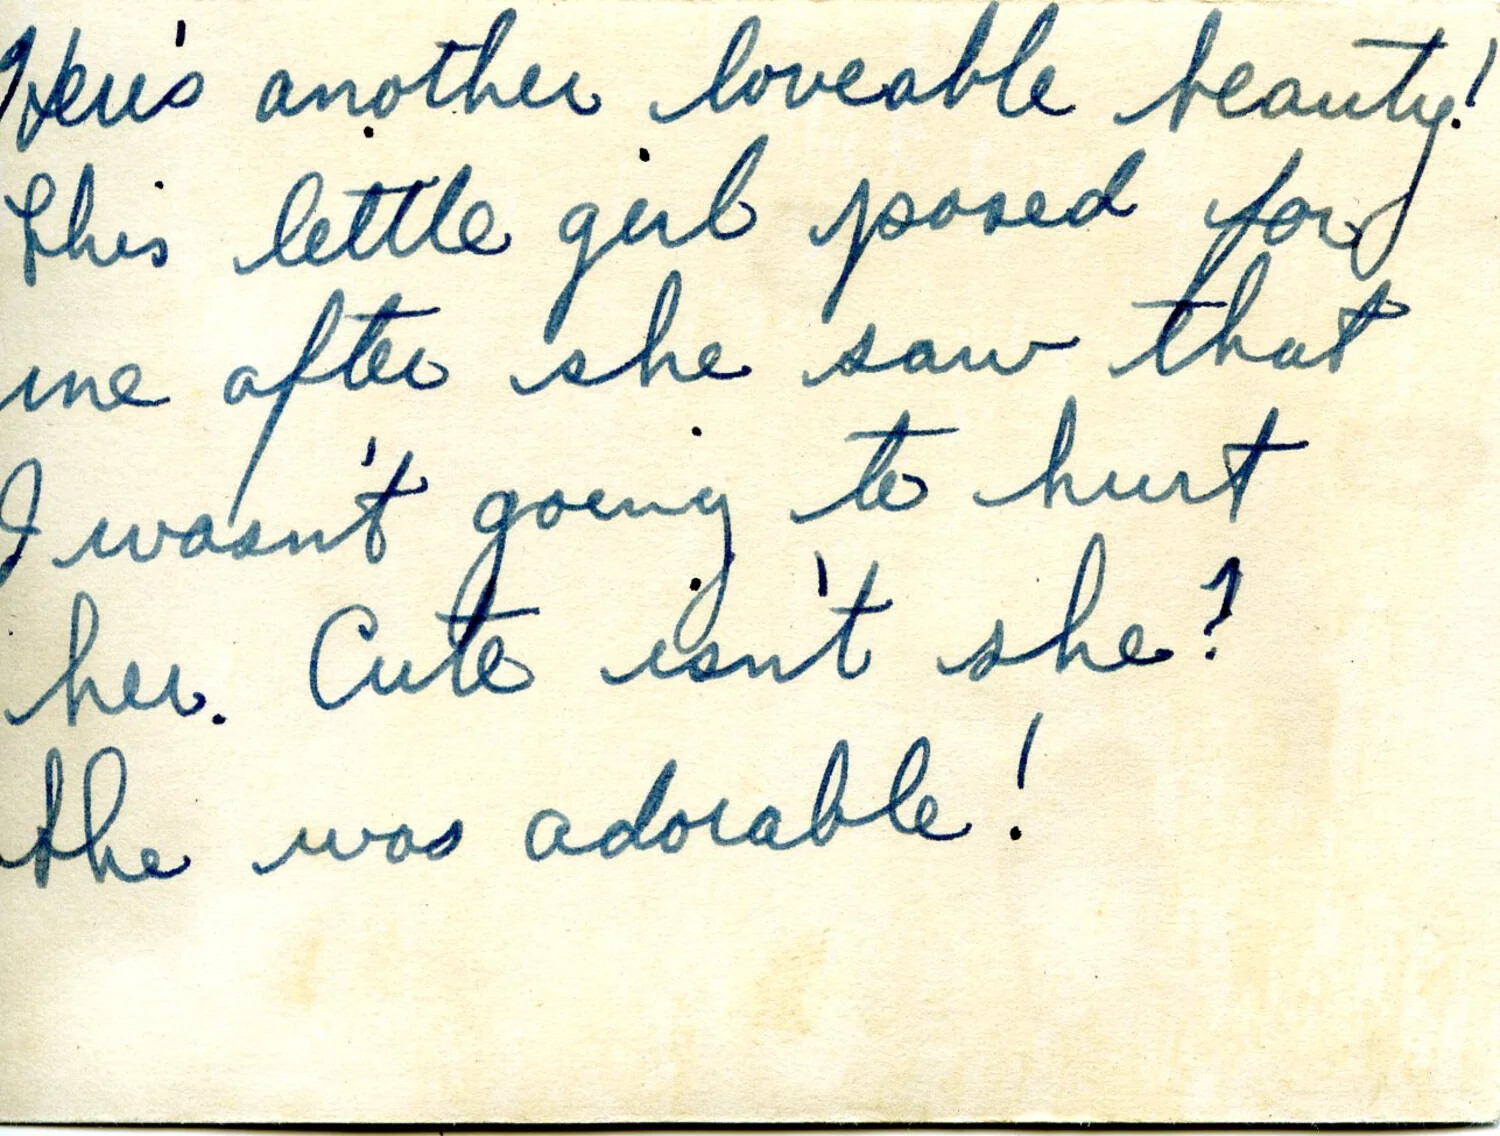 Here's another loveable beauty!
This little girl posed for
me after she saw that
I wasn't going to hurt
her. Cute isn't she?
She was adorable!